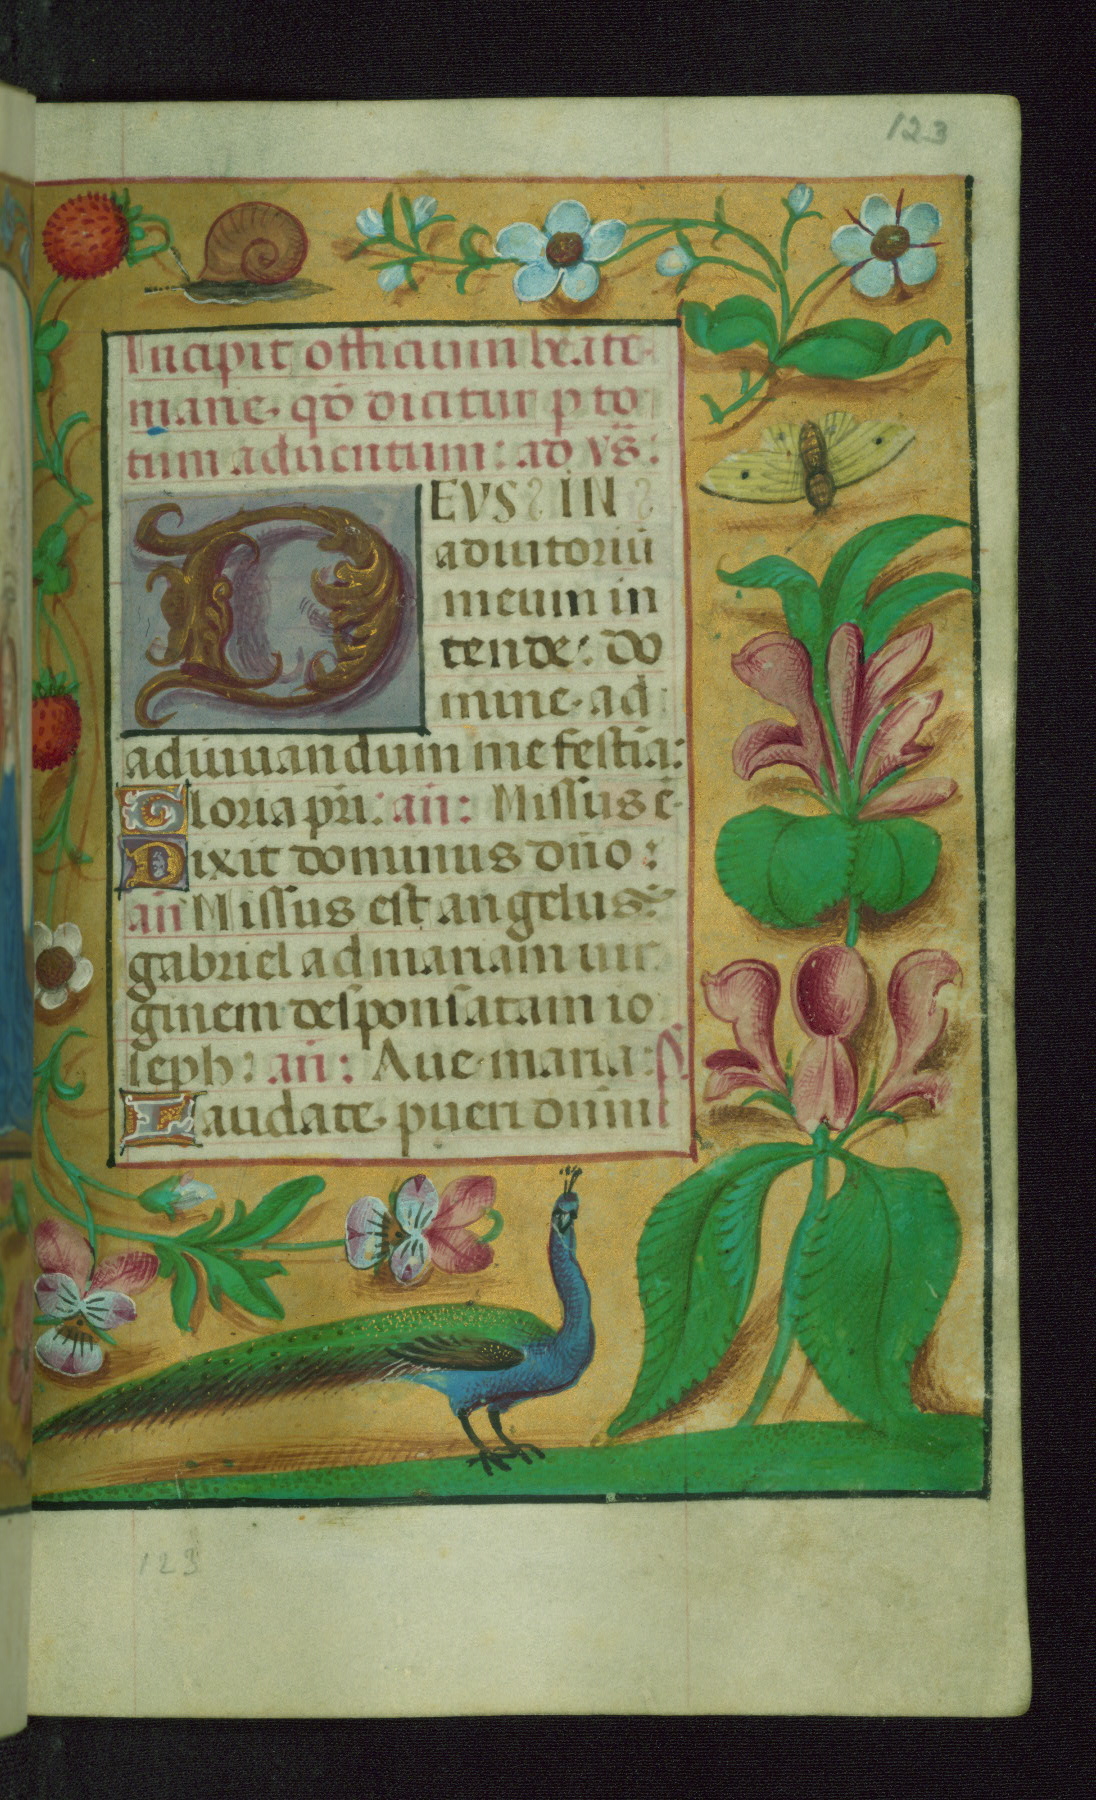 123
Incipit officium beate
marie· qđ dicitur p to
tum aduentum: ad vs̄:
DEVS IN
adiutoriū
meum in
tende: do
mine· ad
adiuuandum me festia:
Gloria pr̄i: an̄: Missus ē·
Dixit dominus dn̄o:
an̄ Missus est angelus
gabriel ad mariam uir
ginem desponsatam io
seph: an̄: Aue maria: ps
Laudate pueri dnm
123